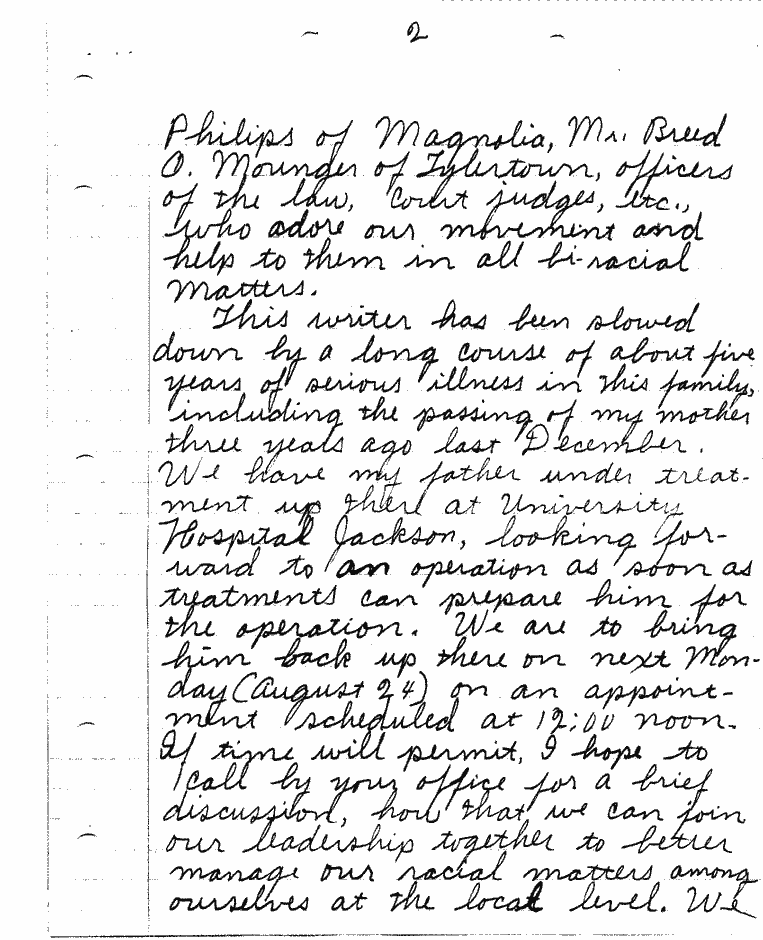 - 2 -
Philips of Magnolia, Mr. Breed
O. Mounger of Tylertown, officers
of the law, court judges, etc.,
who adore our movement and
help to them in all bi-racial
matters.
This writer has been slowed
down by a long course of about five
years of serious illness in this family,
including the passing of my mother
three years ago last December.
We have my father under treat-
ment up there at University
Hospital Jackson, looking for-
ward to an operation as soon as
treatments can prepare him for
the operation. We are to bring
him back up there on next Mon-
day (August 24) on an appoint-
ment scheduled at 12:00 noon.
If time will permit, I hope to
call by your office for a brief
discussion, how that we can join
our leadership together to better
manage our racial matters among
ourselves at the local level. We